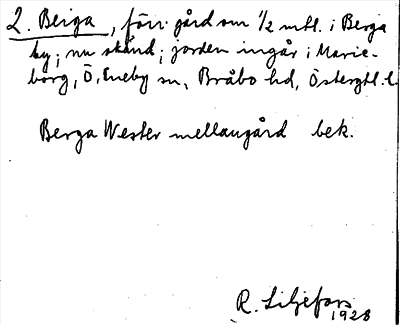 2. Berga, förr gård om 1/2 mtl. i Berga
by; nu skänd; jorden ingår i Marie-
borg, Ö. Eneby sn, Bråbo hd, Östergtl. l.
Berga Wester mellangård bek.
R. Liljefors
1928